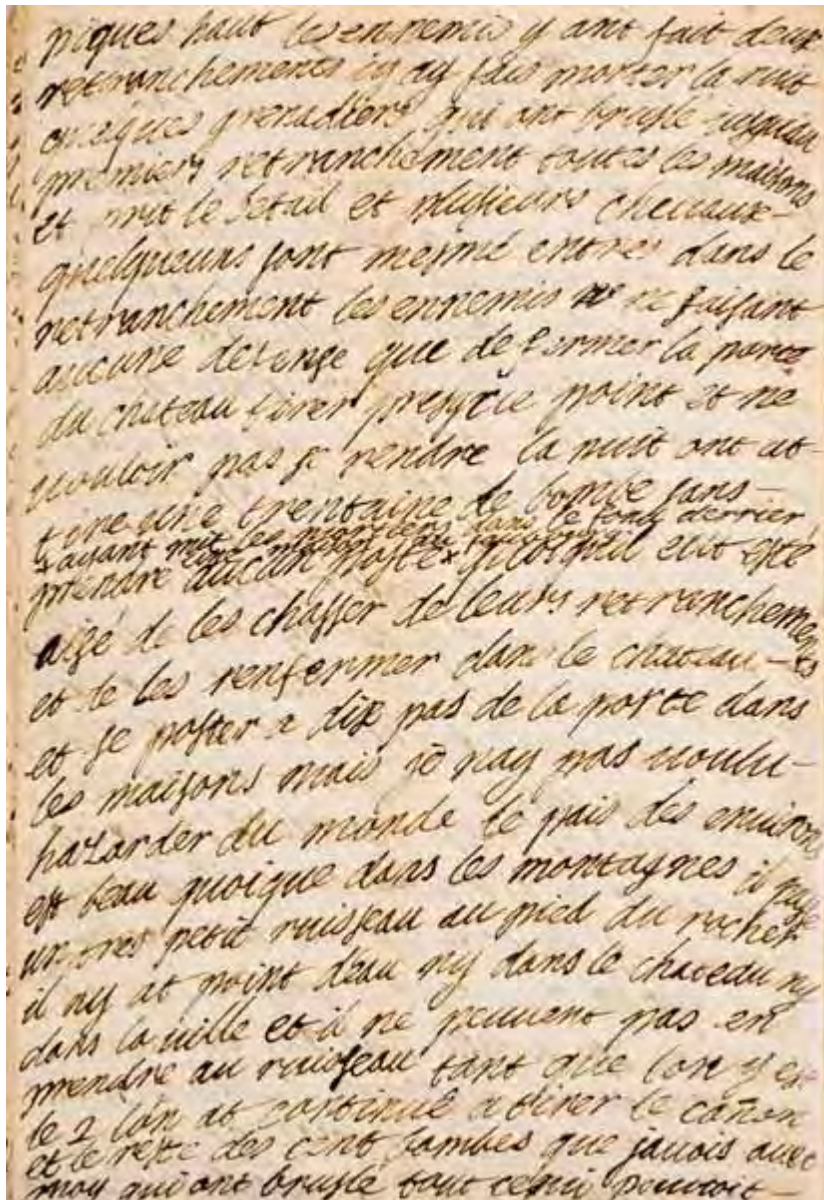 piques haut les ennemis y ant fait deux
retranchements iy ay fais monter la nuit
quelques grenadiers qui ont bruslé jusquau
premiers retranchement toutes les maisons
et le betail et plusieurs cheuaux-
quelqueuns sont mesme entres dans le
retranchement les ennemis ne faisant
aucune defense que de fermer la porte
du chateau tirer presque point et ne
uouloir pas se rendre la nuit ont at-
tiré une trentaine de bombe sans-
+ ayant mit les mortiers dans le fond derrier
prendre aucun poste+ quoiquil eut esté
aizé de les chasser de leurs retranchements
et de les renfermer dans le chateau-
et se poster a dix pas de la porte dans
les maisons mais je nay pas uoulu-
hazarder du monde le pais des enuirons
est beau quoique dans les montagnes il passe
un tres petit ruisseau au pied du rocher
il ny at point deau ny dans le chateau ny
dans la uille et il ne peuuent pas en
prendre au ruisseau tant que lon y est
le 2 lon at continué a tirer le canon
et le reste des cent bombes que jauois auec
moy qui ont bruslé tout ce pouuoit-